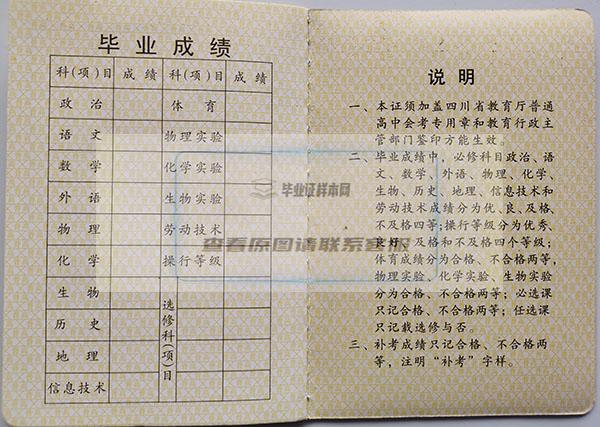 毕业成绩
科(项)目 成绩 科(项)目 成绩
政治 体育
语文 物理实验
数学 化学实验
外语 生物实验
物理 劳动技术
化学 操行等级
生物
历史
地理
信息技术
选修科(项)目
毕业证样本网
查看原图请联系客服
说明
一、本证须加盖四川省教育厅普通
高中会考专用章和教育行政主
管部门签印方能生效。
二、毕业成绩中，必修科目政治、语
文、数学、外语、物理、化学、
生物、历史、地理、信息技术和
劳动技术成绩分为优、良、及格、
不及格四等；操行等级分为优秀、
良好、及格和不及格四个等级；
体育成绩分为合格、不合格两等，
物理实验、化学实验、生物实验
分为合格、不合格两等；必选课
只记合格、不合格两等；任选课
只记载选修与否。
三、补考成绩只记合格、不合格两
等，注明“补考”字样。